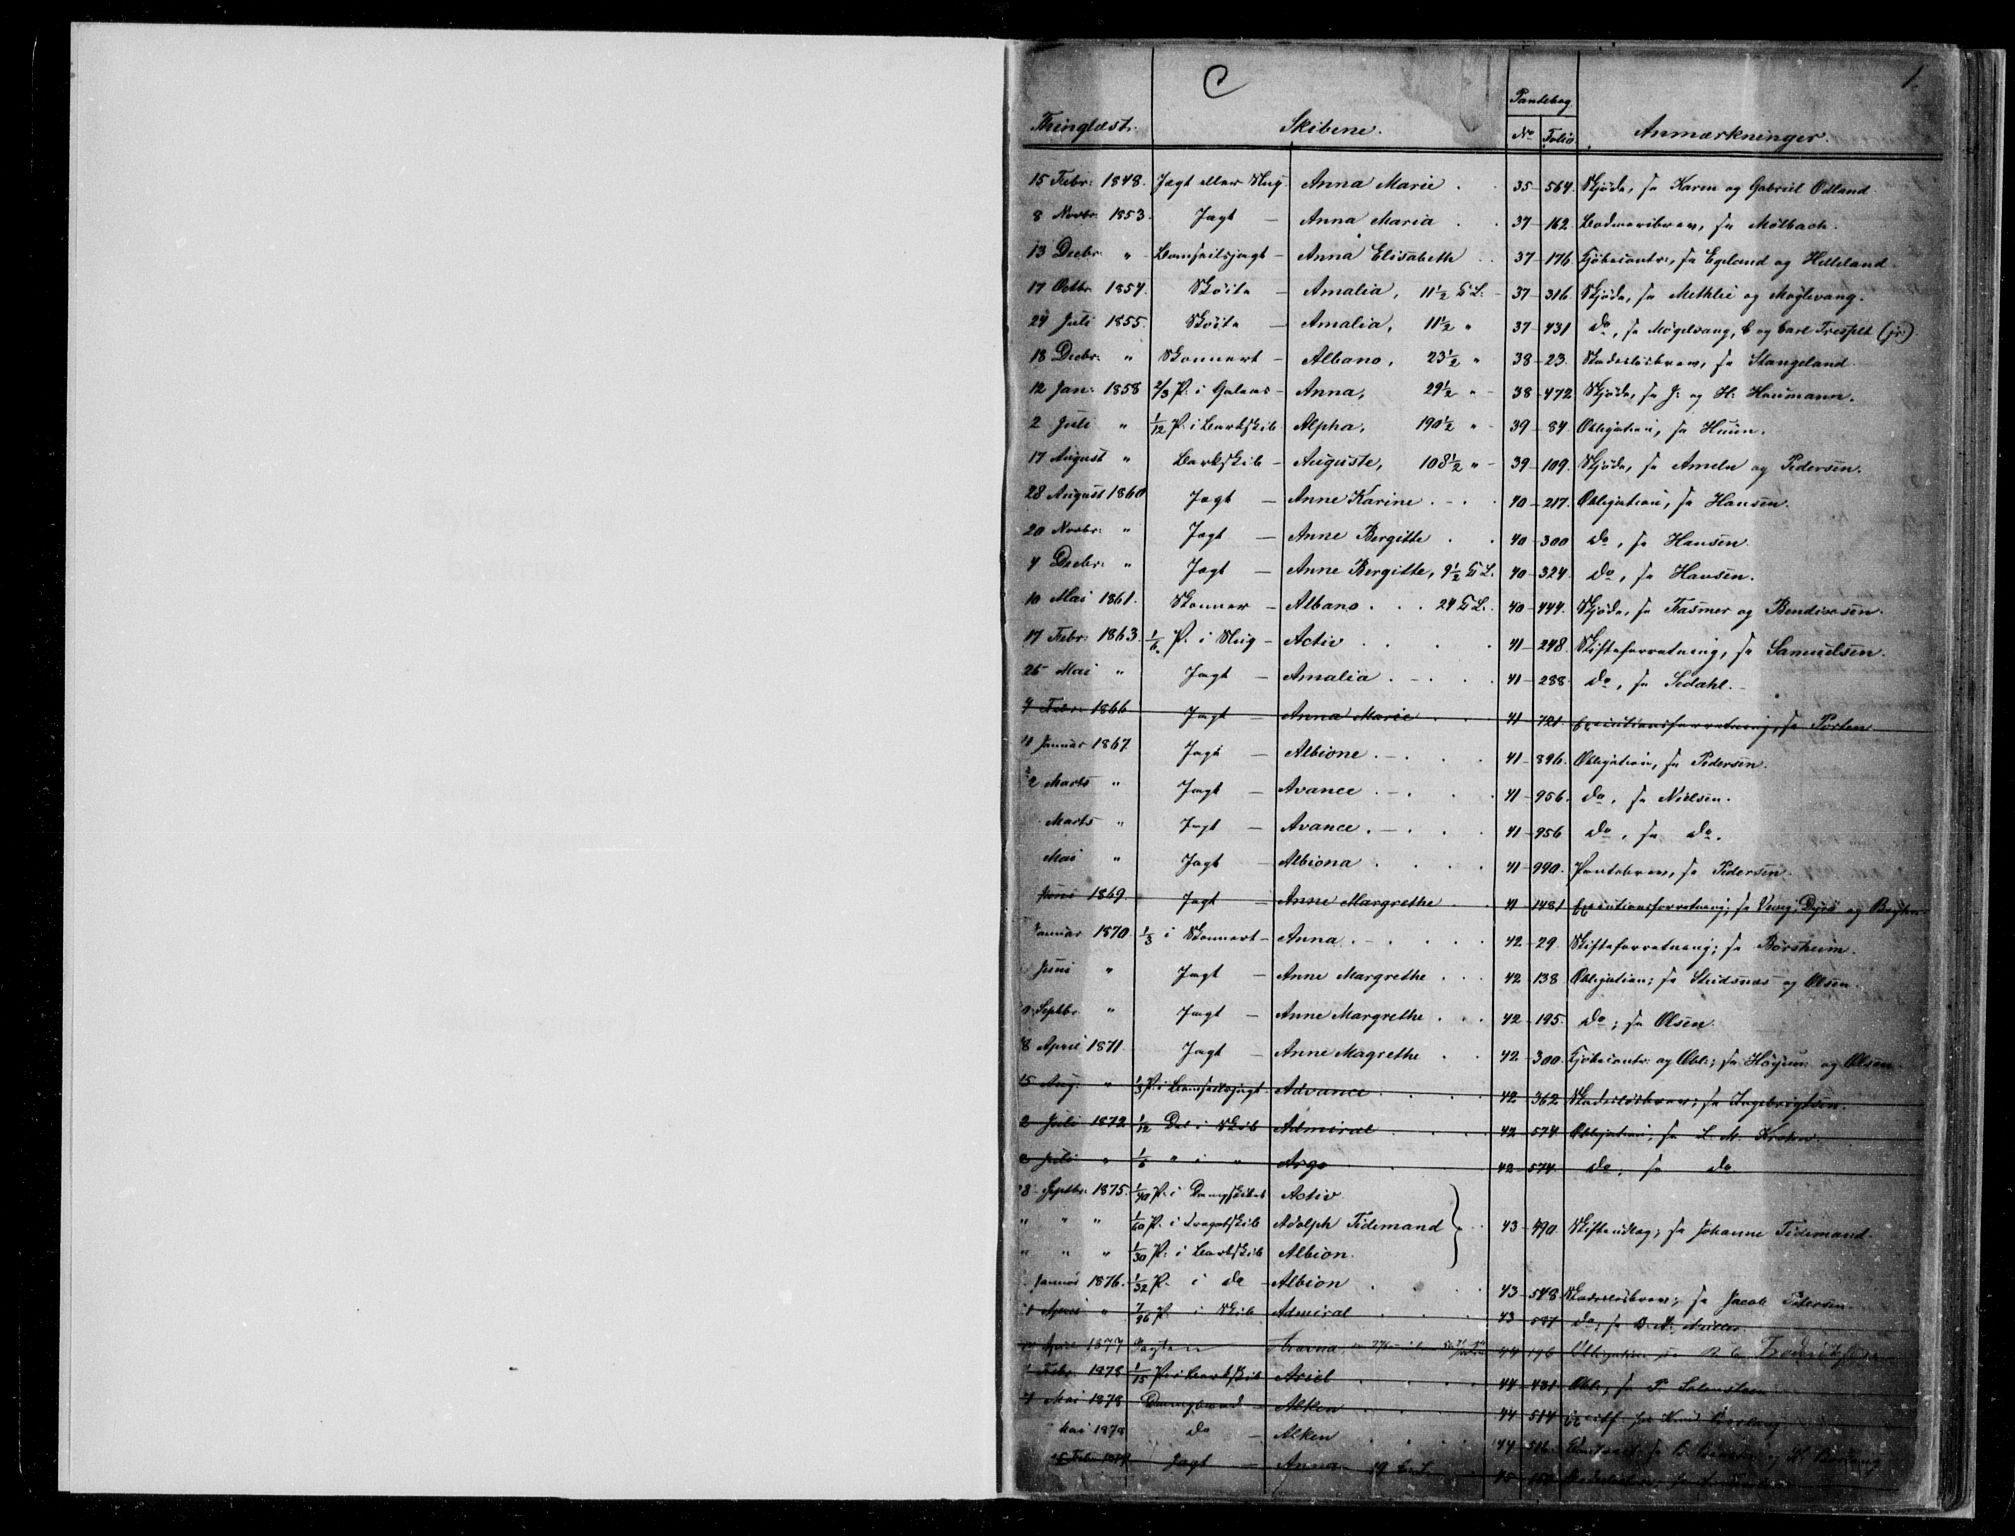 C
1.
Pantebog
Thinglæst. Skibene. No Folio Anmærkninger.
15 Febr: 1848. Jagt eller Slup Anna Marie . . 35 - 564. Skjöde, se Karen og Gabriel Odland.
8 Novbr. 1853. Jagt - Anna Maria . . 37 - 162. Bodmeribrev, se Mölbach.
13 Decbr. " Bomseilsjagt - Anna Elisabeth . . 37 - 176. Kjöbecontr., se Egeland og Helleland.
17 Octbr. 1854. Sköite - Amalia, 11½ C L. - 37 - 316. Skjöde, se Methlie og Möglevang.
24 Juli 1855. Sköite - Amalia, 11½ " 37 - 431 do, se Mögelvang, C og Carl (jr)
18 Decbr. " Skonnert - Albano, 23½ " 38 - 23. Skadeslösbrev, se Stangeland.
12 Jan: 1858 2/3 P. i Galeas - Anna, 29½ " - 38 - 472 Skjöde, se J: og H: Haumann.
2 Juli " 1/12 P. i Barkskib Alpha, 190½ " 39 - 84. Obligation, se Huun.
17 August " Barkskib - Auguste, 108½ " - 39 - 109. Skjöde, se Ameln og Pedersen.
28 August 1860 Jagt - Anne Karine . - . . 40 - 217. Obligation, se Hansen.
20 Novbr: " Jagt - Anne Bergitte . . 40 - 300 do, se Hansen.
4 Decbr: " Jagt - Anne Bergitte, 9½ C L. 40 - 324. do, se Hansen.
10 Mai 1861. Skonner - Albano . . . 24 C L. 40 - 444. Skjöde, se Fasmer og Bendixsen.
17 Febr: 1863. 1/6 P. i Slup - Activ . . . . 41 - 248. Skifteforretning, se Samuelsen.
26 Mai " Jagt - Amalia . - . . 41 - 288. do, se Sedahl. -
Febr: 1866 Jagt - Anna Marie . . . 41 - 721 Executionsforretning, se
Januar 1867. Jagt - Albione . - . . . 41 - 896. Obligation, se Pedersen.
2 Marts " Jagt - Avance . - . . . 41 - 956. do, se Nielsen.
Marts " Jagt - Avance . - . . . 41 - 956 do, se do.
Mai " Jagt - Albiona . . . . 41 - 990. Pantebrev, se Pedersen.
Juni 1869. Jagt - Anne Margrethe . . 41 - 1481 Executionsforretning; se
Januar 1870. 1/3 i Skonnert - Anna . - . . . . 42 - 29. Skifteforretning; se Börsheim.
Juni " Jagt - Anne Margrethe . . . 42 - 138 Obligation; se Studsnæs og Olsen.
Septbr. " Jagt - Anne Margrethe . . . 42 - 195. do; se Olsen.
8 April 1871. Jagt - Anne Magrethe . . 42 - 300. Kjöbecontr. og Obl.; se og Olsen.
15 Aug. " 1/3 P. i Bomseilsjagt - Advance . . . . 42 - 362 Skadeslösbrev; se Ingebrigtsen.
2 Juli 1872 1/12 Del i Skib Admiral . . . . 42 - 574 Obligation; se L. M. Krohn.
2 Juli " 1/6 " i " Argo . . 42 - 574. do; se do
8 Septbr. 1875. 1/40 P. i Dampskibet Activ.
" " " 1/60 P. i Fregatskib Adolph Tidemand . . 43 - 490. Skifteudlæg; se Johanne Tidemand.
" " " 1/30 P. i Barkskib Albion.
Januar 1876. 1/32 P. i do - Albion . . . 43 - 548 Skadeslösbrev; se Jacob Petersen.
April " 7/96 P. i Skib Admiral . . . 43 - 587 do; se
April 1877 Jagten 44 - 196 Obligation se
Febr. 1878 1/15 P. i Barkskib Ariel . . . . 44 - 481 Obl.; se P.
7 Mai 1878 Dampbaad - Alken . . . 44 - 514
Mai 1878 do - Alken . . . . 44 - 516
Febr. 1879 Jagt - Anna 19 C. L. 45 - 150